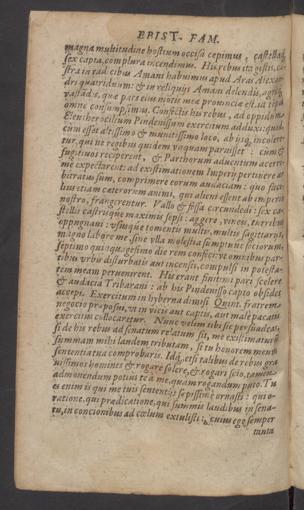 EPIST. FAM.
magna multitudine hostium occisa cepimus, castellaq́;
sex capta, complura incendimus. His rebus ita gestis, ca-
stra in radicibus Amani habuimus apud Aras Alexan-
dri quatriduum: & in reliquijs Amani delendis, agrisq́;
vastandis, quæ pars eius montis meæ prouinciæ est, id tempus
omne consumpsimus. Confectis his rebus, ad oppidum
Eleutherocilicum Pindenissum exercitum adduxi: quod
cum esset altissimo & munitissimo loco, ab ijsq́; incolere-
tur, qui ne regibus quidem vnquam paruissent: cum &
fugitiuos reciperent, & Parthorum aduentum acerri-
me expectarent: ad existimationem Imperij pertinere ar-
bitratus sum, comprimere eorum audaciam: quo faci-
lius etiam cæterorum animi, qui alieni essent ab imperio
nostro, frangerentur. Vallo & fossa circundedi: sex ca-
stellis castrisque maximis sepsi: aggere, vineis, turribus
oppugnaui: vsusque tormentis multis, multis sagittarijs,
magno labore meo, sine vlla molestia sumptuue sociorum,
septimo quinquagesimo die rem confeci: vt omnibus par-
tibus vrbis disturbatis aut incensis, compulsi in potesta-
tem meam peruenirent. His erant finitimi pari scelere
& audacia Tribarani: ab his Pindenisso capto obsides
accepi. Exercitum in hyberna dimisi. Quint. fratrem
negocio præposui, vt in vicis aut captis, aut male pacatis
exercitus collocaretur. Nunc velim tibi sic persuadeas,
si de his rebus ad senatum relatum sit, me existimaturum
summam mihi laudem tributam, si tu honorem meum
sententia tua comprobaris. Idq́;, etsi talibus de rebus gra
uissimos homines & rogare solere, & rogari scio, tamen
admonendum potius te à me, quam rogandum puto. Tu
es enim is qui me tuis sententijs sæpissime ornasti: qui o-
ratione, qui prædicatione, qui summis laudibus in sena-
tu, in concionibus ad cœlum extulisti: cuius ego semper
tanta